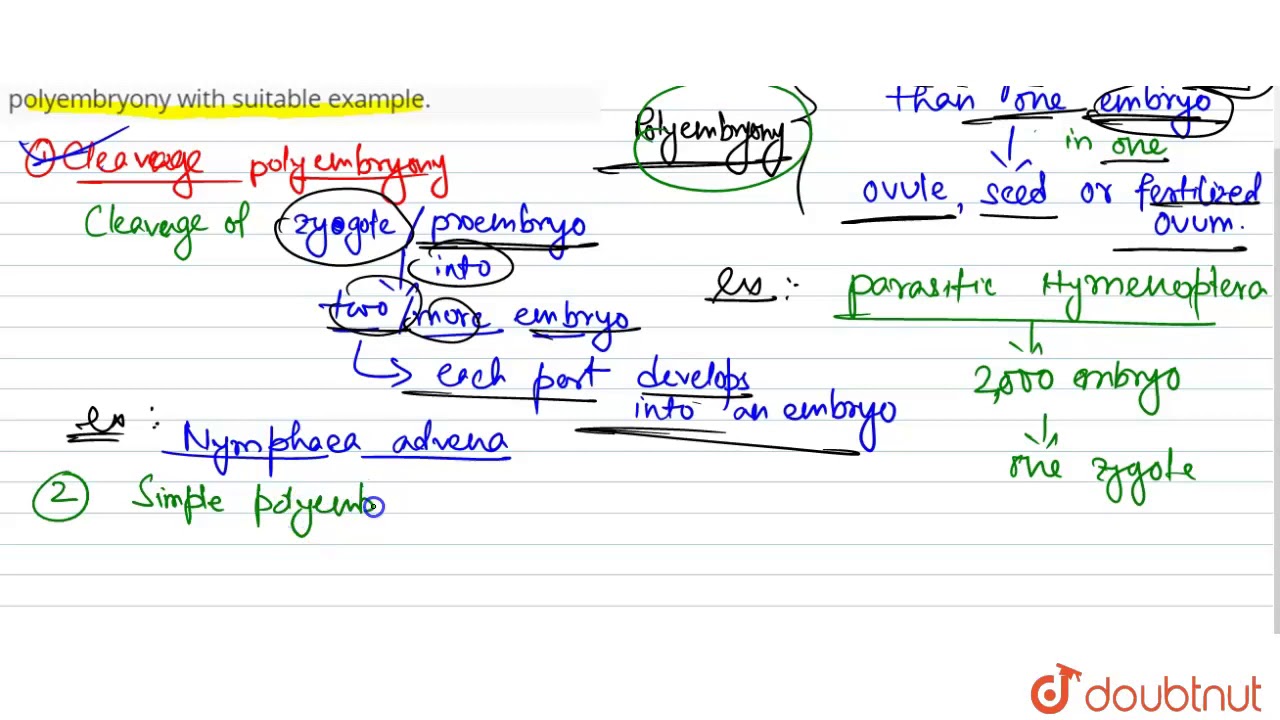 polyembryony with suitable example.
① Cleavage polyembryony
Cleavage of zygote / proembryo
into
two / more embryo
↳ each part develops
into an embryo
ex :
Nymphaea advena
② Simple polyemb
Polyembryony
than one embryo
in one
ovule, seed or fertilized
ovum.
ex : Parasitic Hymenoptera
2,000 embryo
one zygote
doubtnut